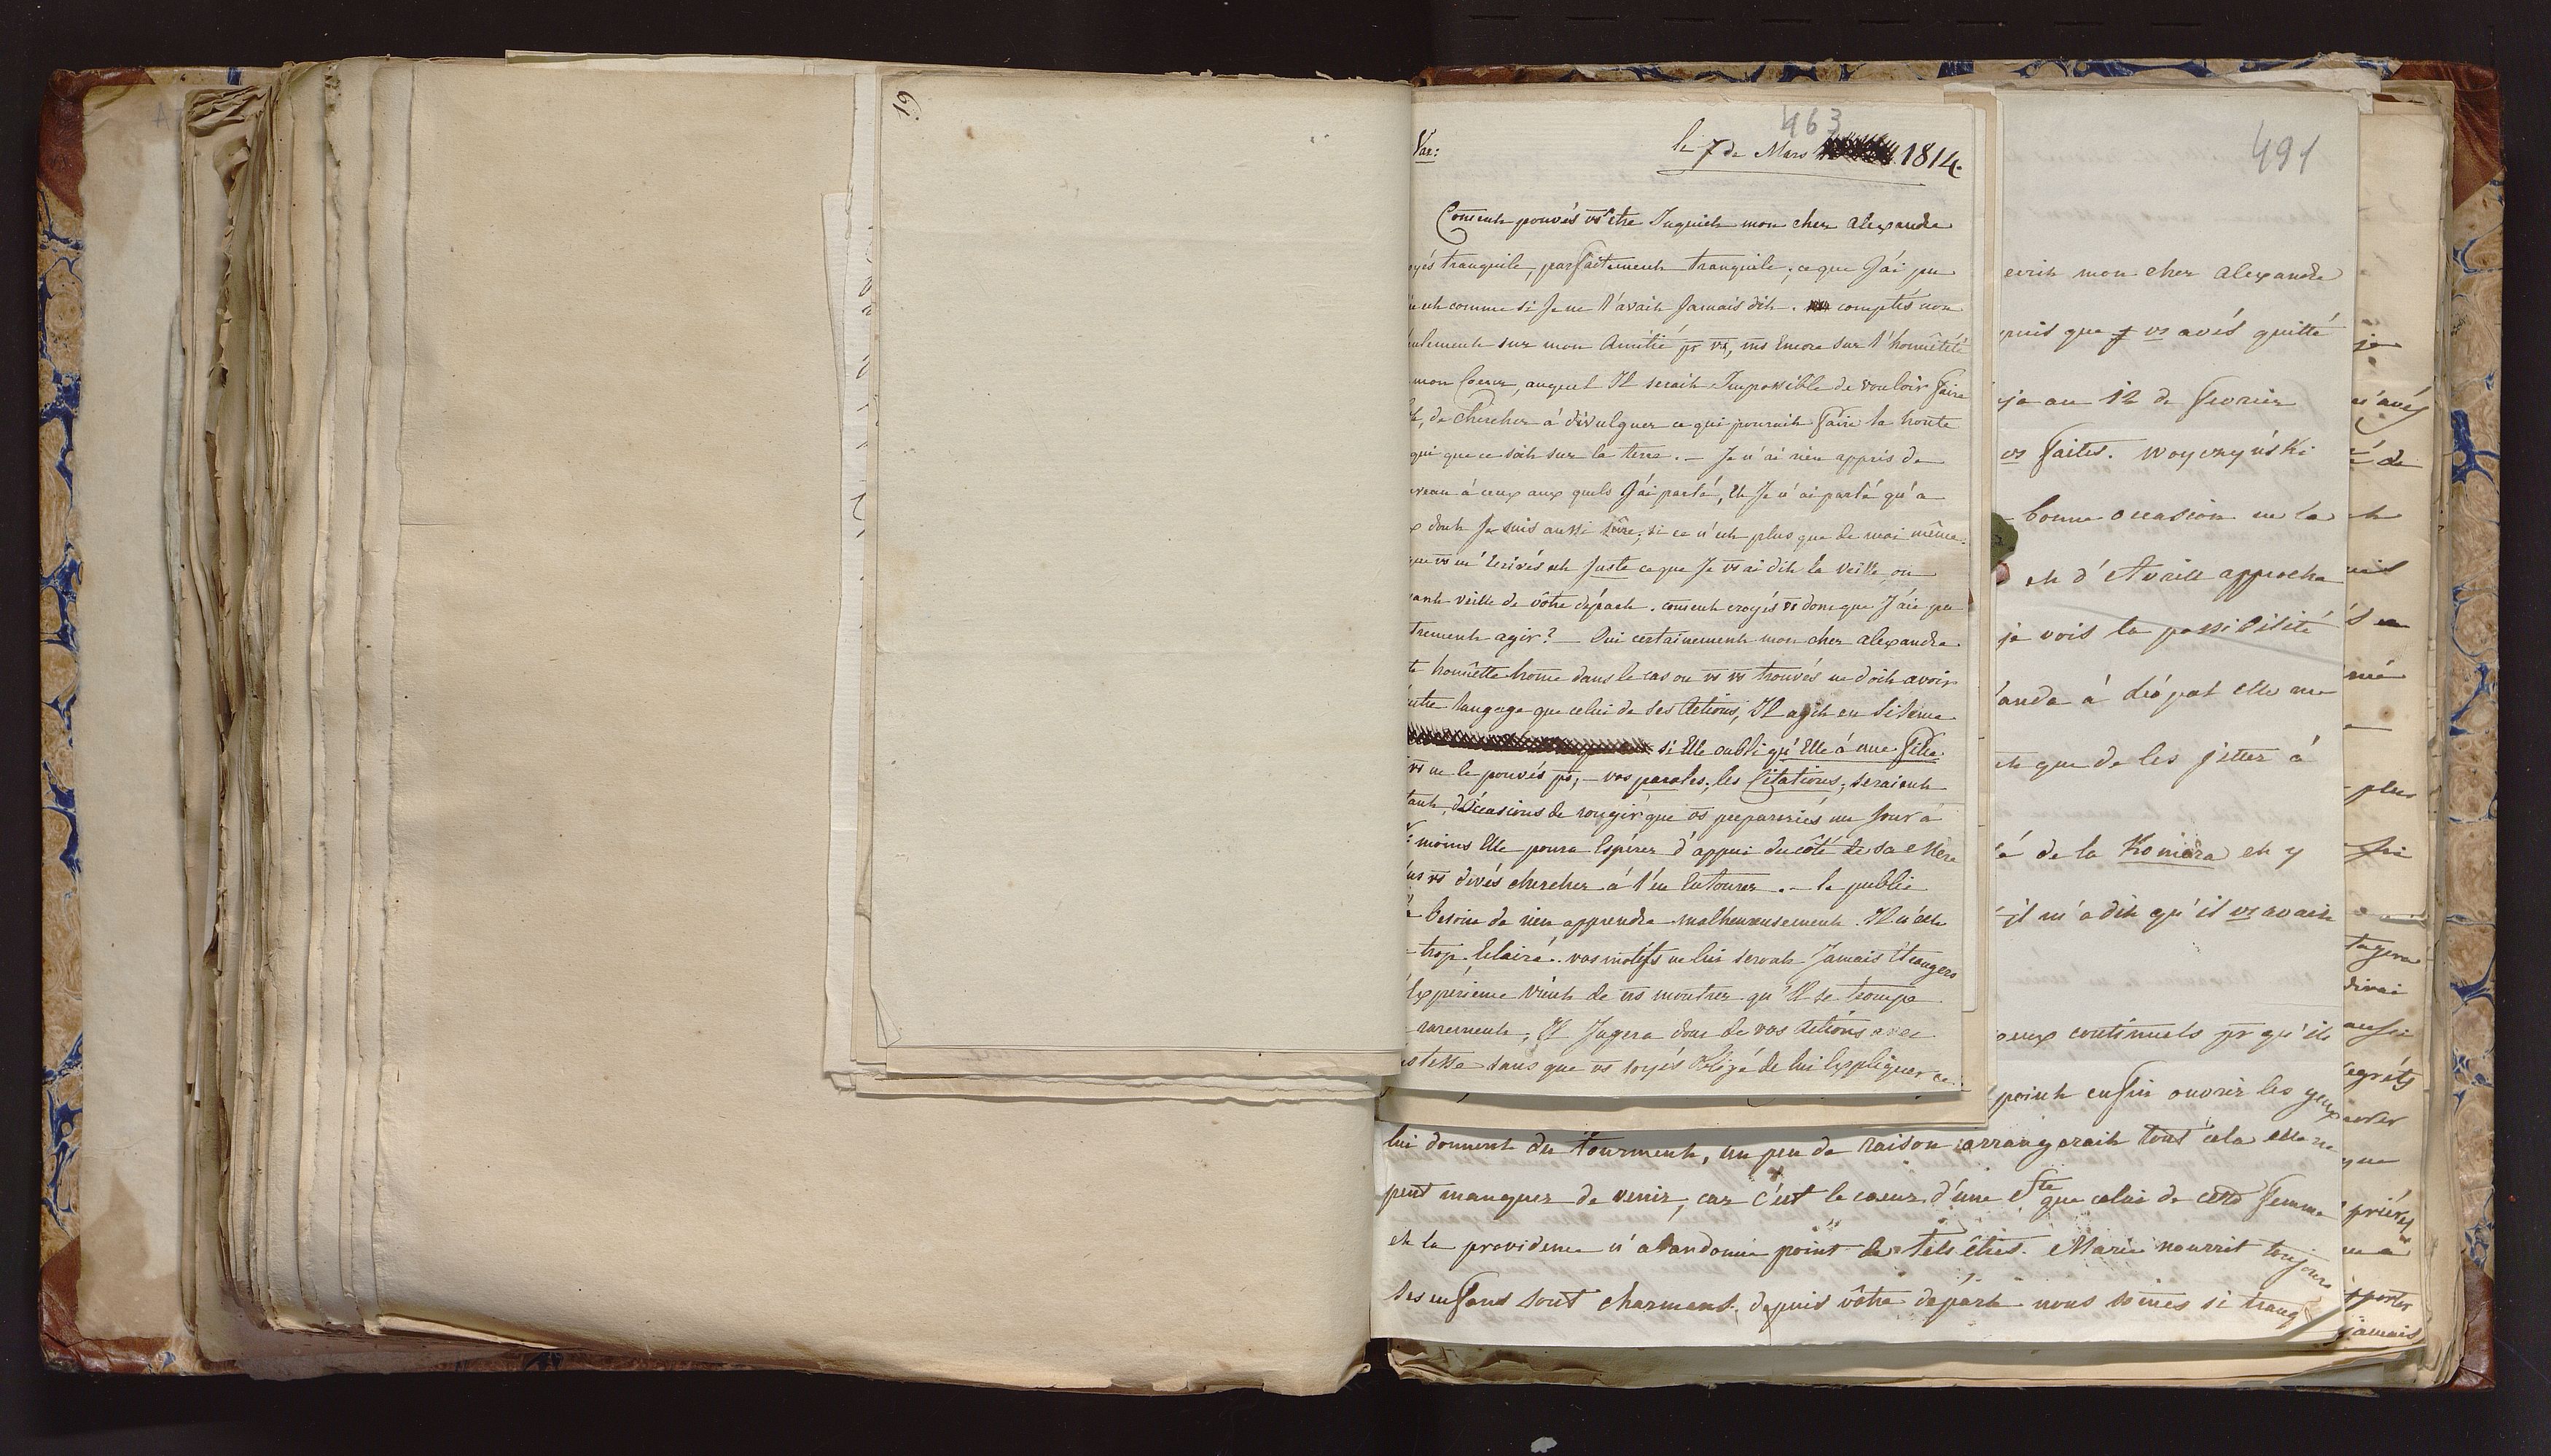 463
Var:
le 7 de Mars 1814.
Coment pouvés vs être Inquiet mon cher alexandre
oyés tranquile, parfaitement tranquile; ce que J'ai pu
est comme si Je ne l'avait Jamais dit. comptés non
eulement sur mon Amitié pr vs, ms Encore sur l'honnêteté
mon Coeur, auquel Il serait Impossible de vouloir faire
de chercher à divulguer ce qui pourait faire la honte
qui que ce soit sur la terre. — Je n'ai rien appris de
uveau à ceux aux quels J'ai parlé, Et Je n'ai parlé qu'a
x dont Je suis aussi sûre, si ce n'est plus que de moi même.
que vs m'Ecrivés est Juste ce que Je vs ai dit la veille, ou
vant veille de vôtre départ. coment croyés vs donc que J'aie pu
trement agir? — Oui certainement mon cher alexandre
te honnêtte home dans le cas ou vs vs trouvés ne doit avoir
utre langage que celui de ses Actions, Il agit en silence
si Elle oubli qu'Elle à une fille
vs ne le pouvés ps; — vos paroles, les Citations, seraient
tant d'Occasions de rougir que vs prepareriés un Jour à
moins Elle poura Espérer d'appui du côté de sa Mère
us vs devés chercher à l'en Entourer. — le public
besoin de rien apprendre malheureusement. Il n'est
trop Eclairé. vos motifs ne lui seront Jamais Etrangers
Expérience vient de ns montrer qu'Il se trompe
rarement; Il Jugera donc de vos Actions avec
stesse sans que vs soyés Obligé de lui Expliquer ce
491
ecrit mon cher alexandre
puis que vs avés quitté
ja au 12 de fevrier
vs faites. Woyczyński
bonne occasion en la
et d'Avrill approche
je vois la possibilité
anda à dépot elle me
et que de les jetter à
é de la Komiora et y
il m'a dit qu'il vs avait
oeux continuels pr qu'il
point enfin ouvrir les yeux
lui donnent du tourment, un peu de raison arrangerait tout cela elle ne
peut manquer de venir, car c'est le coeur d'une Ste que celui de cette femme
et la providence n'abandonne point de tels êtres. Marie nourrit toujours
ses enfans sont charmans. depuis vôtre départ nous somes si tranq
je
m'avés
é de
né
plus
tagera
dirai
aussi
egréts
que
priéres
porter
jamais